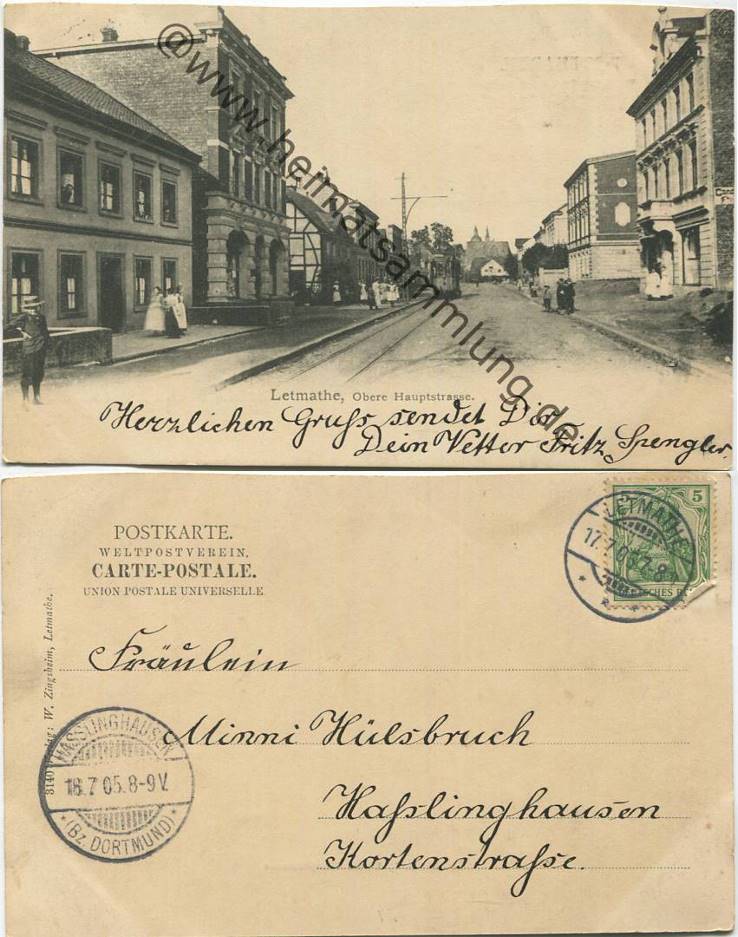 @www.heimatsammlung.de
Letmathe, Obere Hauptstrasse.
Herzlichen Gruß sendet Dir
Dein Vetter Fritz Spengler.
POSTKARTE.
WELTPOSTVEREIN.
CARTE-POSTALE.
UNION POSTALE UNIVERSELLE
5
LETMATHE
17.7.05.7-8
Fräulein
Minni Hülsbruch
Haßlinghausen
Kortenstraße.
HASSLINGHAUSEN
18.7.05.8-9V.
*(Bz. DORTMUND)*
W. Zingsheim, Letmathe.
3140